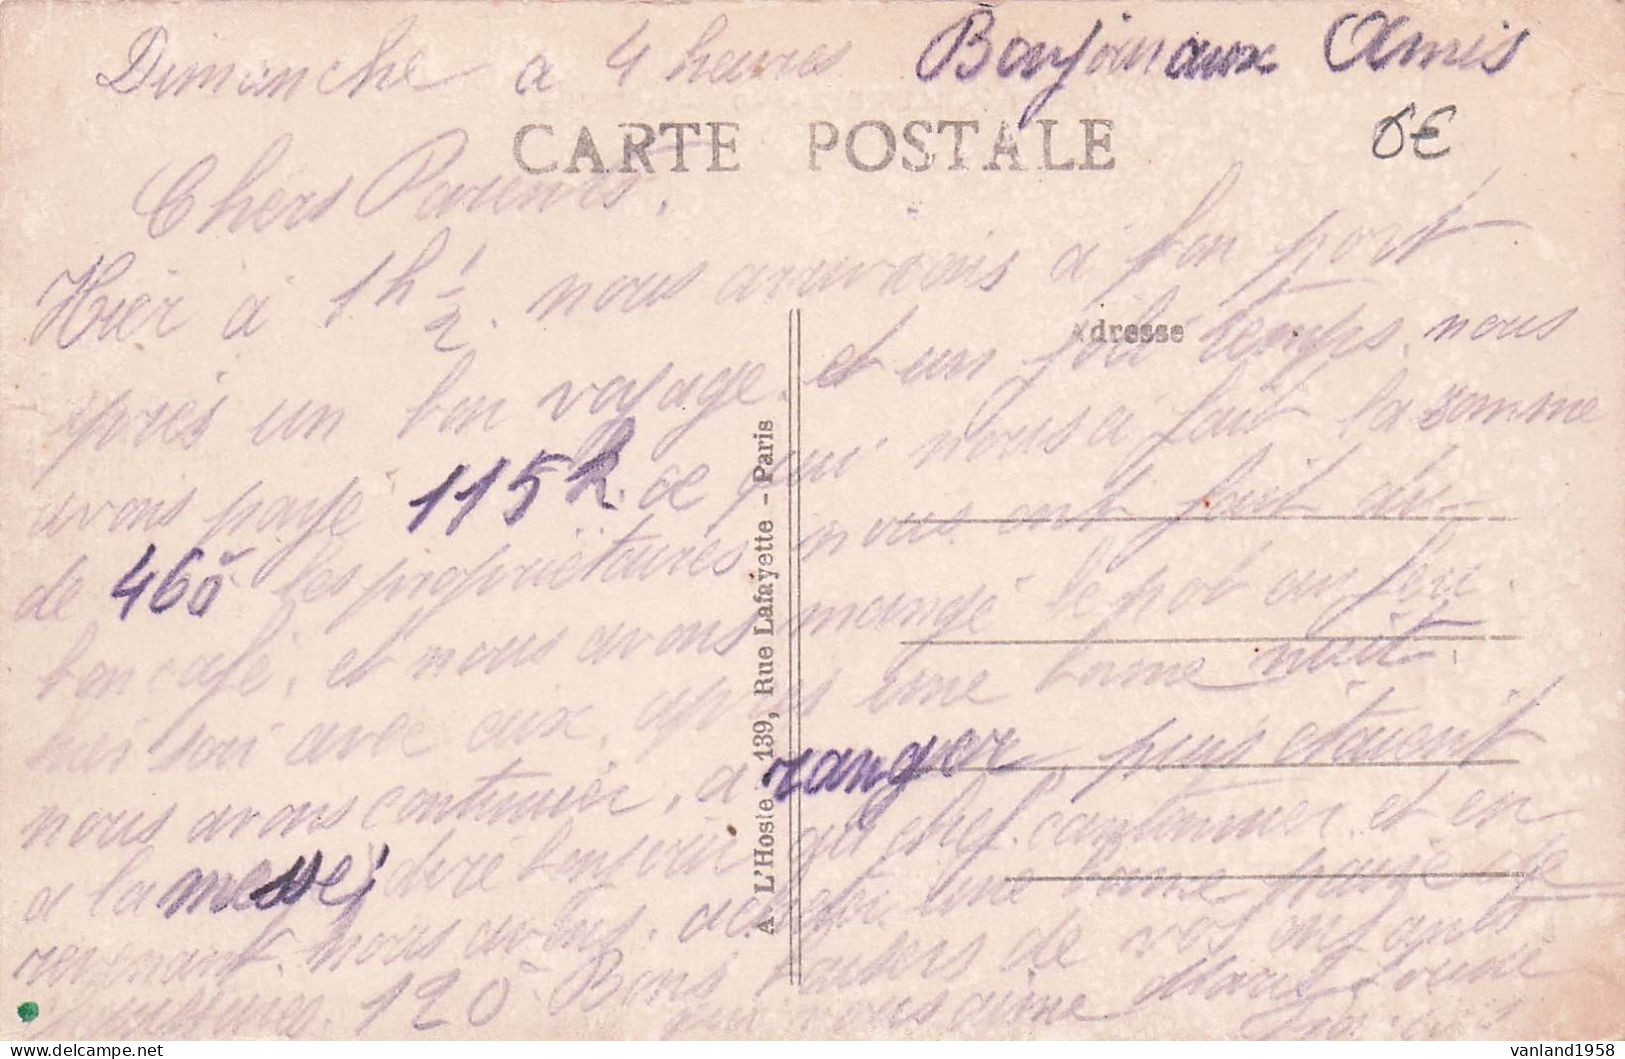 Dimanche a 4 heures Bonjour aux Amis
6€
CARTE POSTALE
Chers Parents.
Hier à 1h 1/2. nous arrivions à bon port
Adresse
après un bon voyage. et un joli temps. nous
avons payé 115 ce qui nous a fait la somme
de 460 les propriétaires nous ont fait du
bon café, et nous avons mangé le pot au feu.
soir avec eux, après une bonne nuit.
nous avons continuer, a ranger, puis étaient
a la messe, dire bonsoir au chef. cantonnier. et en
revenant. nous avons. acheter une bonne
120 Bons baisers de vos enfants
qui vous aime
A L'Hoste 139, Rue Lafayette - Paris
vanland1958